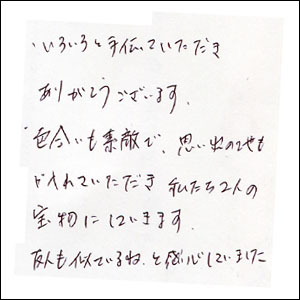 いろいろと手伝っていただき
ありがとうございます。
色合いも素敵で、思い出の
かれていただき 私たち2人の
宝物にしています。
友人も似ているね、と感心していました